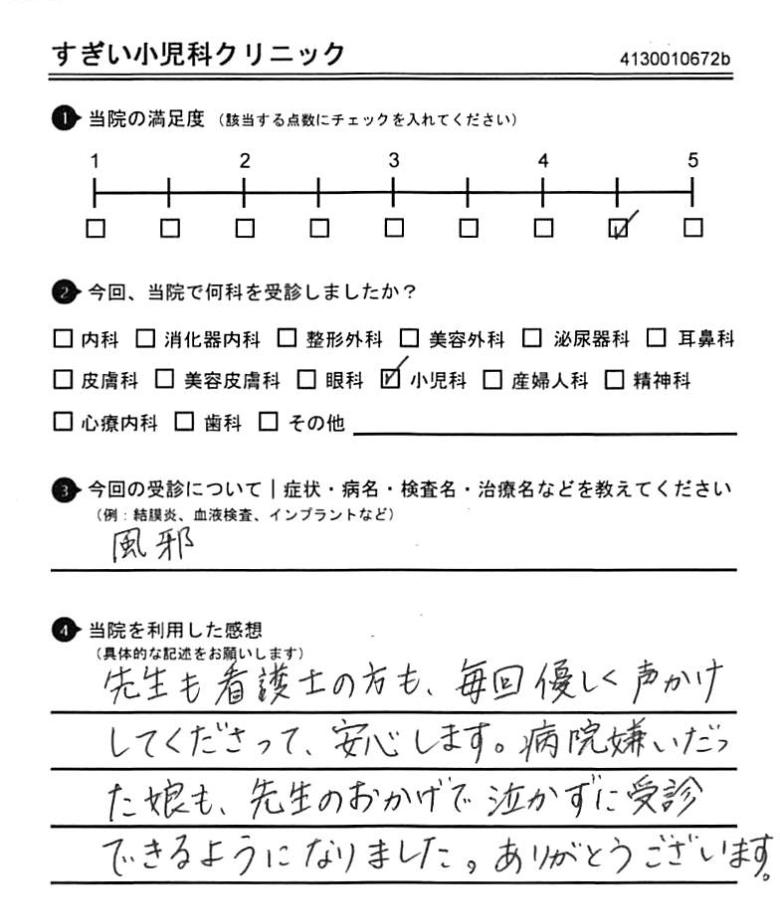 すぎい小児科クリニック 4130010672b
1 当院の満足度 （該当する点数にチェックを入れてください）
1 2 3 4 5
2 今回、当院で何科を受診しましたか？
内科 消化器内科 整形外科 美容外科 泌尿器科 耳鼻科
皮膚科 美容皮膚科 眼科 小児科 産婦人科 精神科
心療内科 歯科 その他
3 今回の受診について｜症状・病名・検査名・治療名などを教えてください
（例：結膜炎、血液検査、インプラントなど）
風邪
4 当院を利用した感想
（具体的な記述をお願いします）
先生も看護士の方も、毎回優しく声かけ
してくださって、安心します。病院嫌いだっ
た娘も、先生のおかげで泣かずに受診
できるようになりました。ありがとうございます。